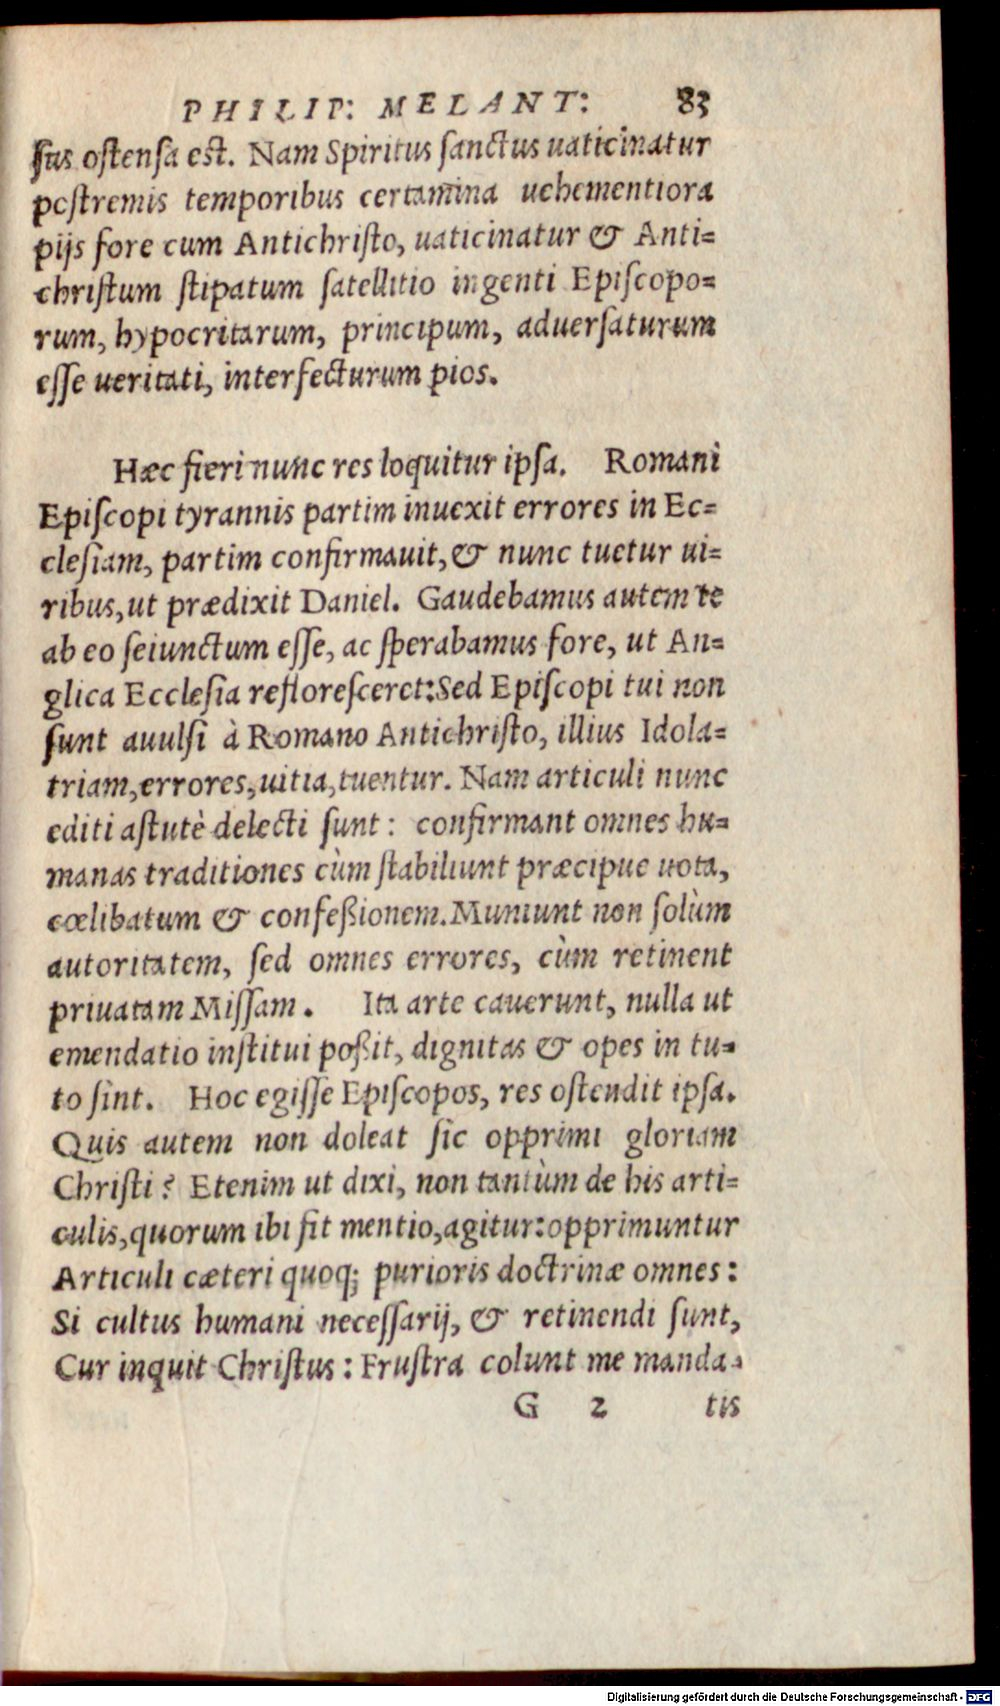 PHILIP: MELANT: 83
sus ostensa est. Nam Spiritus sanctus uaticinatur
postremis temporibus certamina uehementiora
pijs fore cum Antichristo, uaticinatur & Anti=
christum stipatum satellitio ingenti Episcopo=
rum, hypocritarum, principum, aduersaturum
esse ueritati, interfecturum pios.
Hæc fieri nunc res loquitur ipsa. Romani
Episcopi tyrannis partim inuexit errores in Ec=
clesiam, partim confirmauit, & nunc tuetur ui=
ribus, ut prædixit Daniel. Gaudebamus autem te
ab eo seiunctum esse, ac sperabamus fore, ut An=
glica Ecclesia refloresceret: Sed Episcopi tui non
sunt auulsi à Romano Antichristo, illius Idola=
triam, errores, uitia, tuentur. Nam articuli nunc
editi astutè delecti sunt: confirmant omnes hu=
manas traditiones cùm stabiliunt præcipue uota,
cœlibatum & confeßionem. Muniunt non solùm
autoritatem, sed omnes errores, cùm retinent
priuatam Missam. Ita arte cauerunt, nulla ut
emendatio institui poßit, dignitas & opes in tu=
to sint. Hoc egisse Episcopos, res ostendit ipsa.
Quis autem non doleat sic opprimi gloriam
Christi? Etenim ut dixi, non tantùm de his arti=
culis, quorum ibi fit mentio, agitur: opprimuntur
Articuli cæteri quoq; purioris doctrinæ omnes:
Si cultus humani necessarij, & retinendi sunt,
Cur inquit Christus: Frustra colunt me manda=
G 2 tis
Digitalisierung gefördert durch die Deutsche Forschungsgemeinschaft - DFG